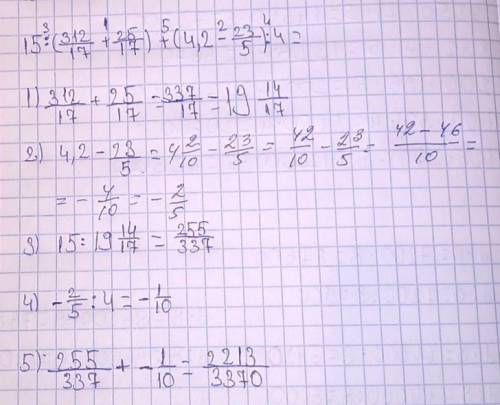 15 :³ (312/17 +¹ 25/17) +⁵ (4,2 −² 23/5) :⁴ 4 =
1) 312/17 + 25/17 = 337/17 = 19 14/17
2) 4,2 − 23/5 = 4 2/10 − 23/5 = 42/10 − 23/5 = 42 − 46/10 =
= − 4/10 = − 2/5
3) 15 : 19 14/17 = 255/337
4) − 2/5 : 4 = − 1/10
5) 255/337 + − 1/10 = 2213/3370